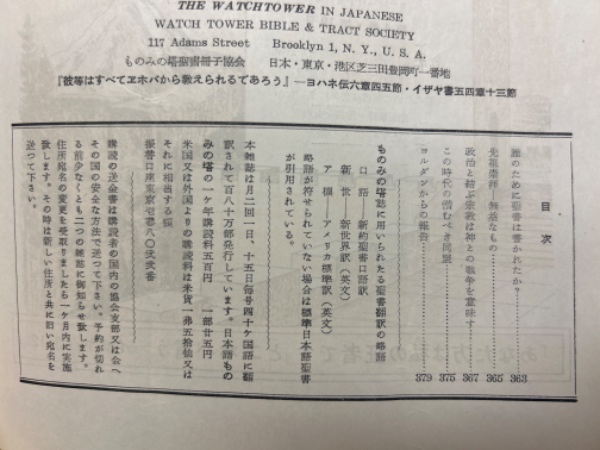 THE WATCHTOWER IN JAPANESE
WATCH TOWER BIBLE & TRACT SOCIETY
117 Adams Street Brooklyn 1, N. Y., U. S. A.
ものみの塔聖書冊子協会 日本・東京・港区芝三田豊岡町一番地
『彼等はすべてヱホバから敎えられるであろう』―ヨハネ伝六章四五節・イザヤ書五四章十三節
目次
誰のために聖書は書かれたか?……363
先祖崇拝―無益なもの……365
政治と結ぶ宗教は神との戦争を意味す……367
この時代の憎むべき同盟……375
ヨルダンからの報告……379
ものみの塔誌に用いられたる聖書翻訳の略語
口語 新約聖書口語訳
新世 新世界訳(英文)
ア標 アメリカ標準訳(英文)
略語が符せられていない場合は標準日本語聖書
が引用されている。
本雑誌は月二回一日、十五日毎号四十ケ国語に翻
訳されて百八十万部発行しています。日本語もの
みの塔の一ケ年購読料五百円 一部廿五円
米国又は外国よりの購読料は米貨一弗五拾仙又は
それに相当する額
振替口座東京壱壱八〇弐弐番
購読の送金書は購読者の国内の協会支部又は会へ
その国の安全な方法で送つて下さい。予約が切れ
る前少なくとも二つの雑誌に御知らせ致します。
住所宛名の変更を受取りましたら一ケ月内に実施
致します。その時は新しい住所と共に旧い宛名を
送つて下さい。